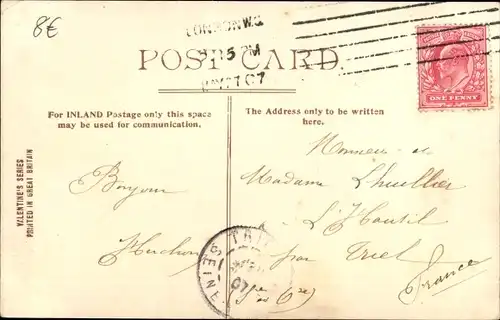 8€
LONDON W.C.
5 PM
MAY 7 07
POST CARD.
ONE PENNY
For INLAND Postage only this space
may be used for communication.
The Address only to be written
here.
VALENTINE'S SERIES
PRINTED IN GREAT BRITAIN
Bonjour
Monsieur et
Madame Lhuellier
L'Hautil
par Triel
France
TRIEL
SEINE
07